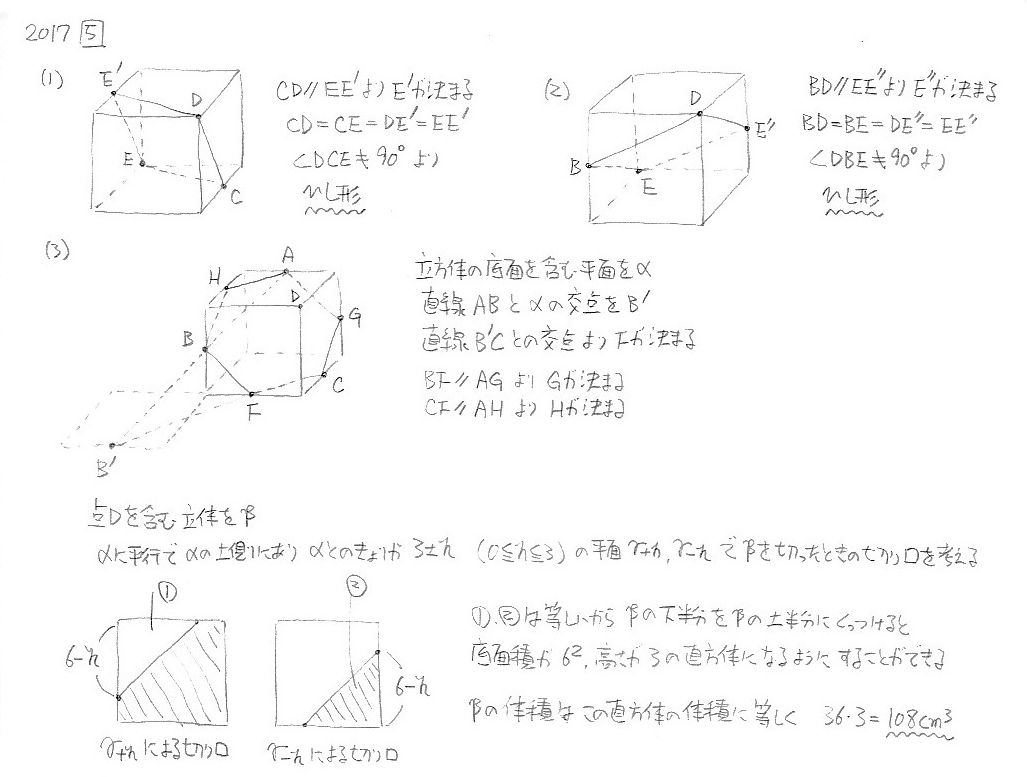 2017 5
(1)
E′
D
E
C
CD // EE′ より E′が決まる
CD = CE = DE′ = EE′
∠DCE ≠ 90° より
ひし形
(2)
D
E″
B
E
BD // EE″より E″が決まる
BD = BE = DE″ = EE″
∠DBE ≠ 90° より
ひし形
(3)
A
H
D
G
B
C
F
B′
立方体の底面を含む平面をα
直線ABとαの交点をB′
直線B′Cとの交点よりFが決まる
BF // AG より Gが決まる
CF // AH より Hが決まる
点Dを含む立体をβ
αに平行でαの上側にあり αとのきょりが 3±h (0≦h≦3) の平面 γ+h, γ-h でβを切ったときの切り口を考える
①
②
6-h
6-h
γ+hによる切り口
γ-hによる切り口
①,②は等しいから βの下半分をβの上半分にくっつけると
底面積が 6², 高さが 3の直方体になるようにすることができる
βの体積は この直方体の体積に等しく 36·3 = 108cm³